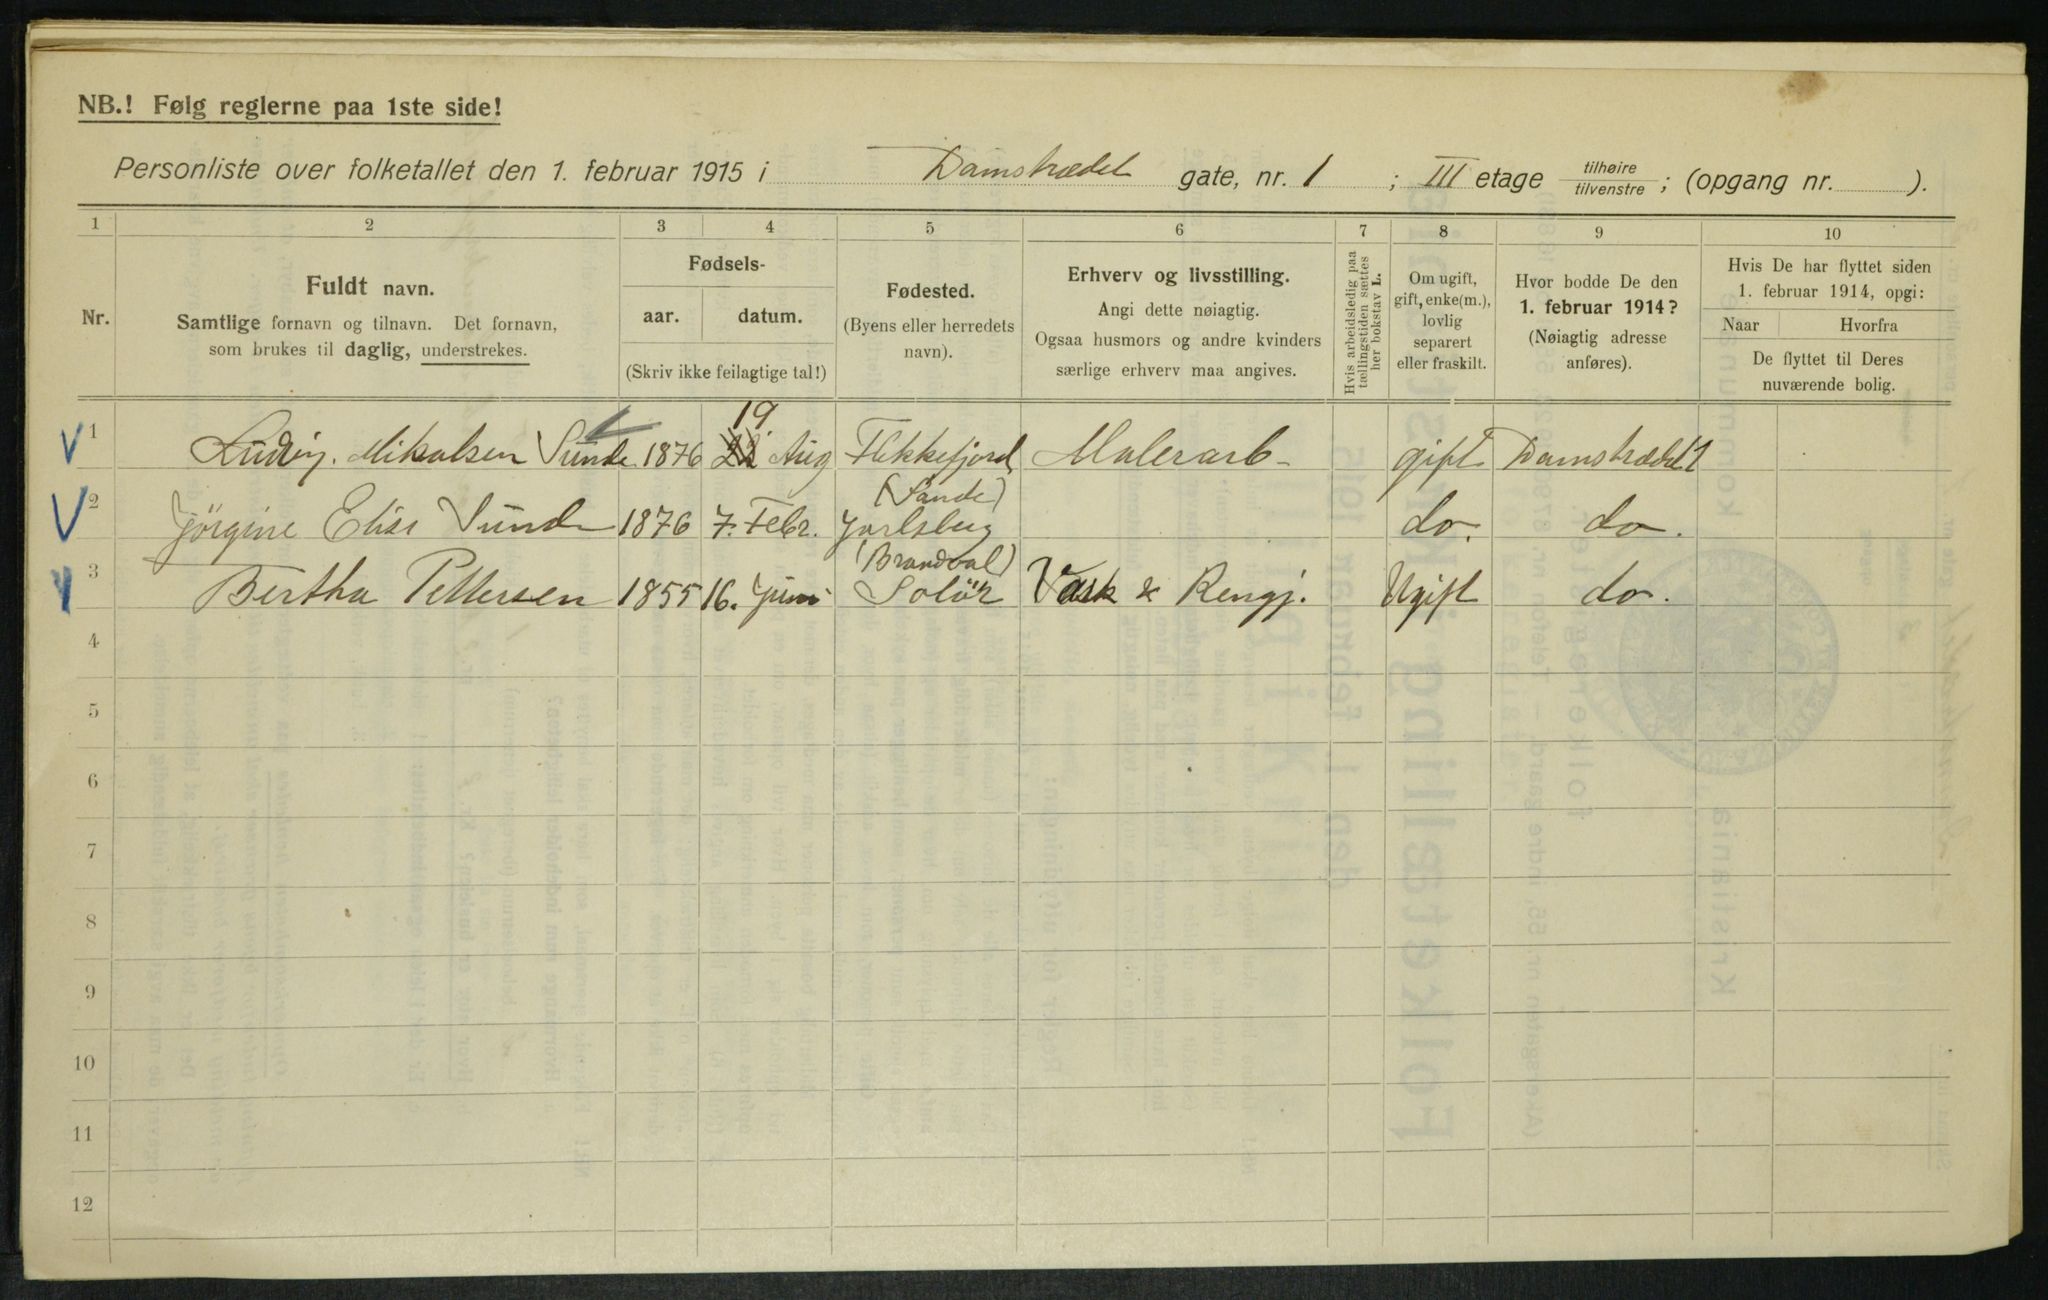 NB.! Følg reglerne paa 1ste side!
Personliste over folketallet den 1. februar 1915 i Damstrædet gate, nr. 1 ; III etage tilhøire tilvenstre ; (opgang nr. ).
1 2 3 4 5 6 7 8 9 10
Nr.
Fuldt navn.
Samtlige fornavn og tilnavn. Det fornavn,
som brukes til daglig, understrekes.
Fødsels-
aar. datum.
(Skriv ikke feilagtige tal!)
Fødested.
(Byens eller herredets
navn).
Erhverv og livsstilling.
Angi dette nøiagtig.
Ogsaa husmors og andre kvinders
særlige erhverv maa angives.
Hvis arbeidsledig paa
tællingstiden sættes
her bokstav L.
Om ugift,
gift, enke(m.),
lovlig
separert
eller fraskilt.
Hvor bodde De den
1. februar 1914?
(Nøiagtig adresse
anføres).
Hvis De har flyttet siden
1. februar 1914, opgi:
Naar Hvorfra
De flyttet til Deres
nuværende bolig.
19
1 Ludvig. Mikalsen Sunde 1876 22 Aug Flekkefjord Malerarb- gift Damstrædet 1
(Sande)
2 Jörgine Elise Sunde 1876 7. Febr. Jarlsberg do. do.
(Brandval)
3 Bertha Pettersen 1855 16. Juni Solör Vask & Rengj. Ugift do.
4
5
6
7
8
9
10
11
12